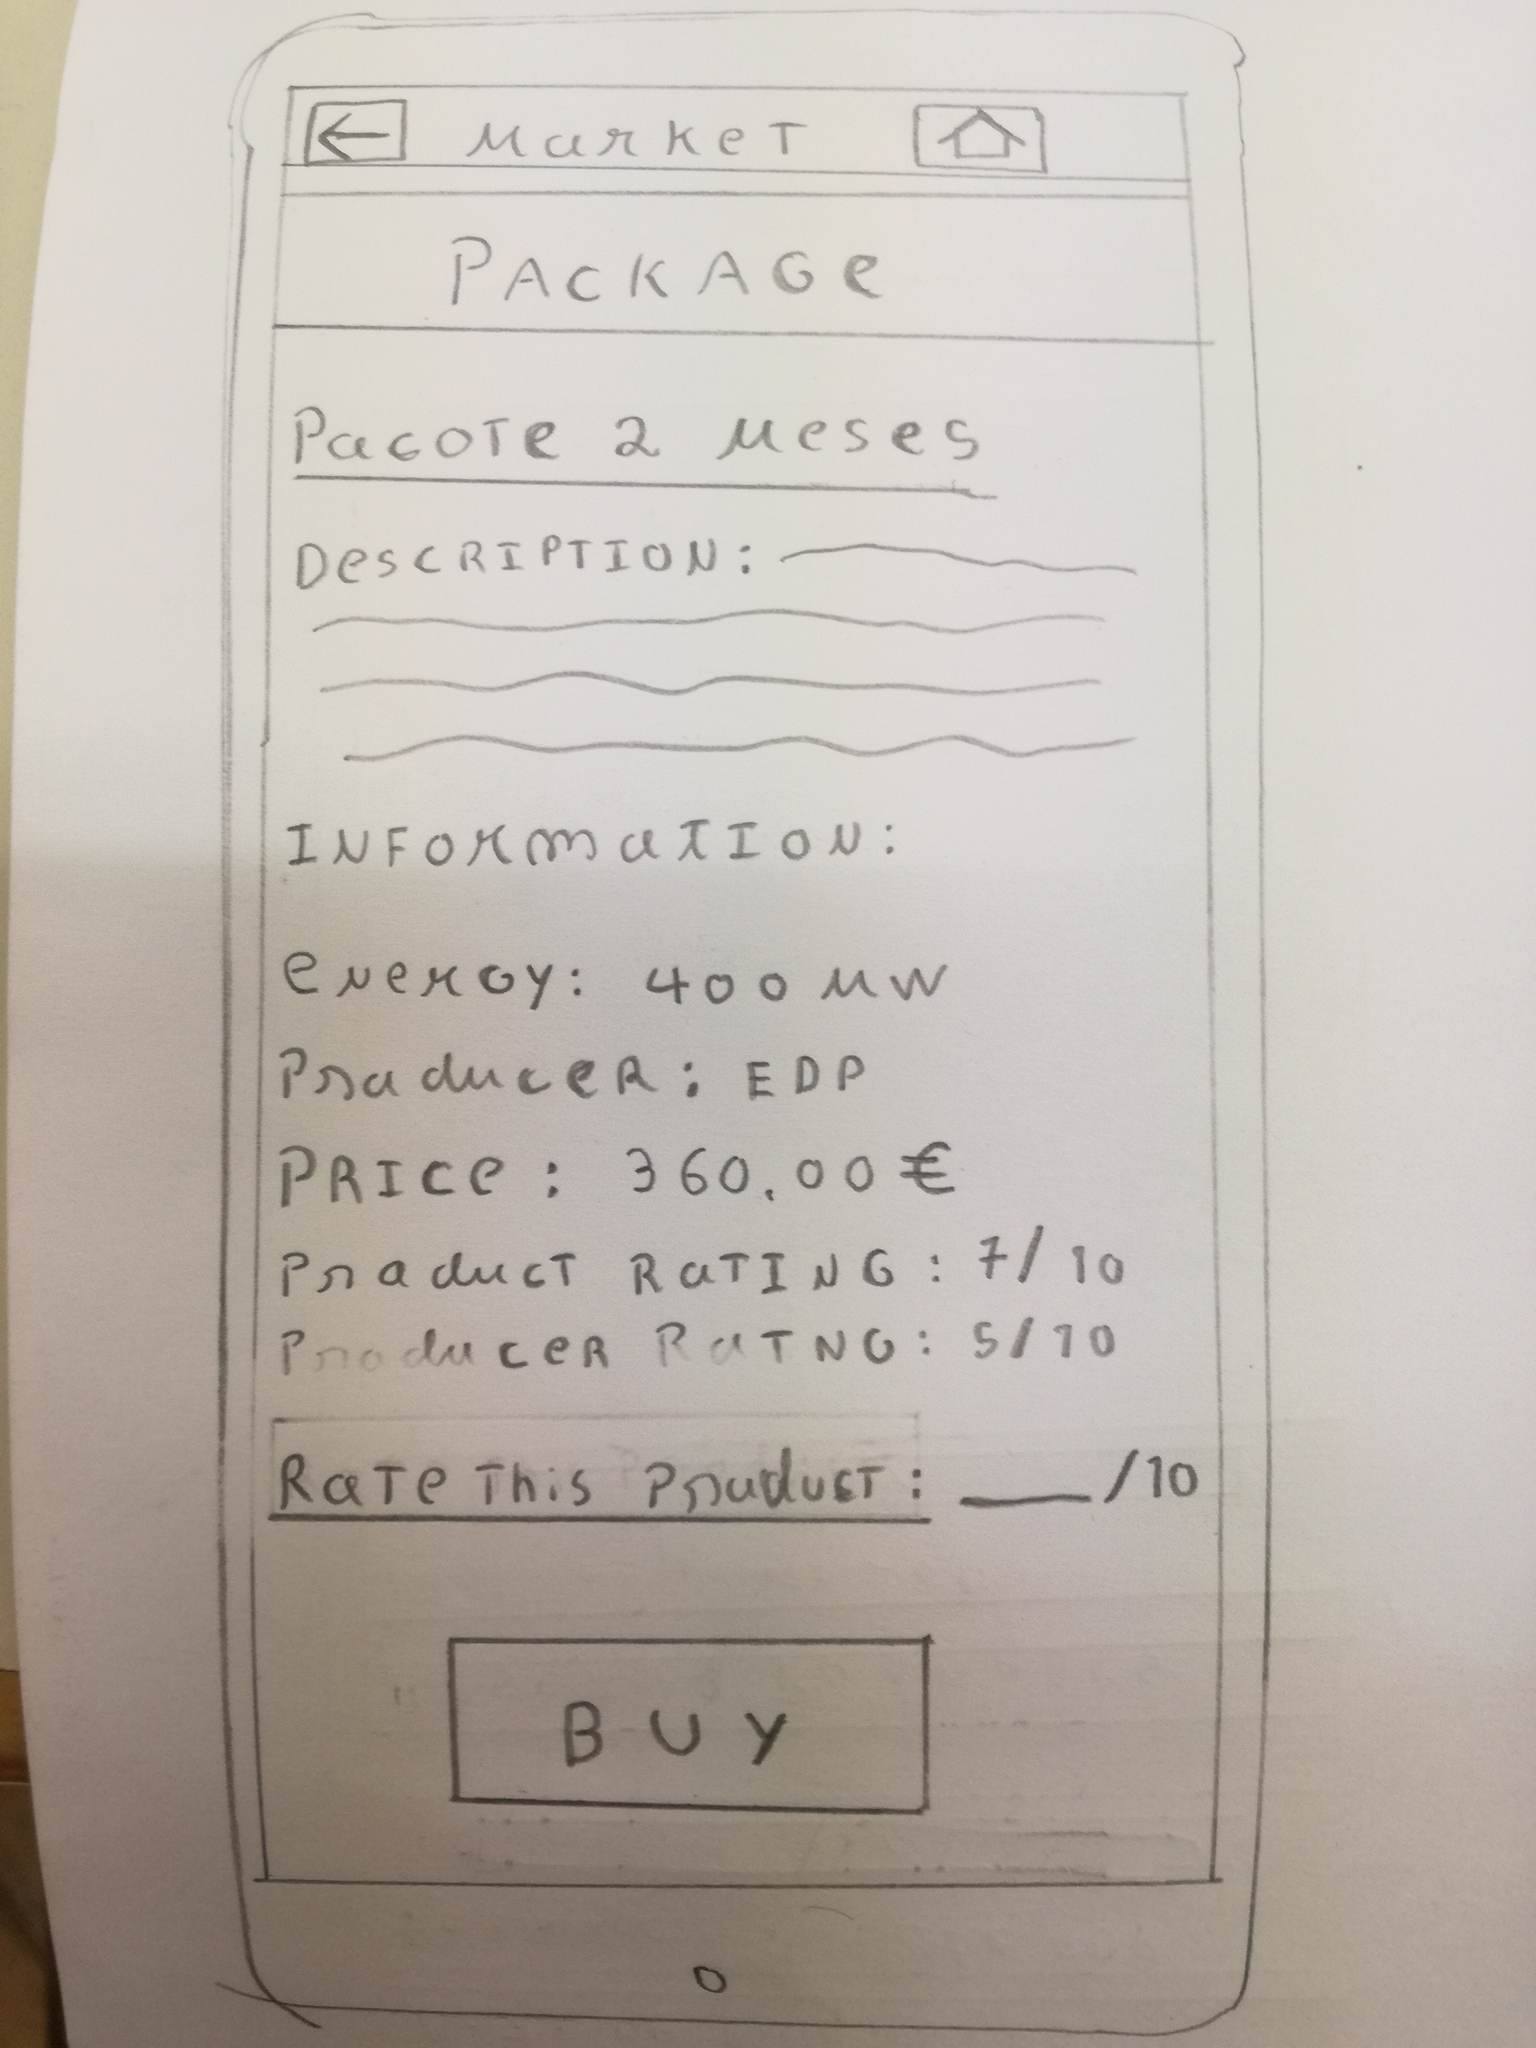 Market
PACKAGe
PacoTe 2 Meses
DescRIPTION:
INFOrmaTION:
eNerGy: 400 MW
ProducеR: EDP
PRICe: 360.00€
Product RaTING: 7/10
ProducеR RaTNG: 5/10
RaTe This Product: ___/10
BUY